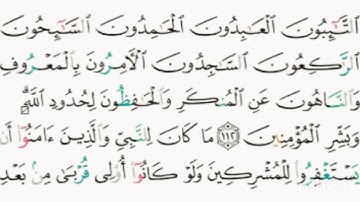 التَّـٰٓئِبُونَ الْعَـٰبِدُونَ الْحَـٰمِدُونَ السَّـٰٓئِحُونَ
الرَّٰكِعُونَ السَّـٰجِدُونَ الْـَٔامِرُونَ بِالْمَعْرُوفِ
وَالنَّاهُونَ عَنِ الْمُنكَرِ وَالْحَـٰفِظُونَ لِحُدُودِ اللَّهِ ۗ
وَبَشِّرِ الْمُؤْمِنِينَ ١١٢ مَا كَانَ لِلنَّبِيِّ وَالَّذِينَ ءَامَنُوٓا أَن
يَسْتَغْفِرُوا لِلْمُشْرِكِينَ وَلَوْ كَانُوٓا أُولِى قُرْبَىٰ مِنۢ بَعْدِ